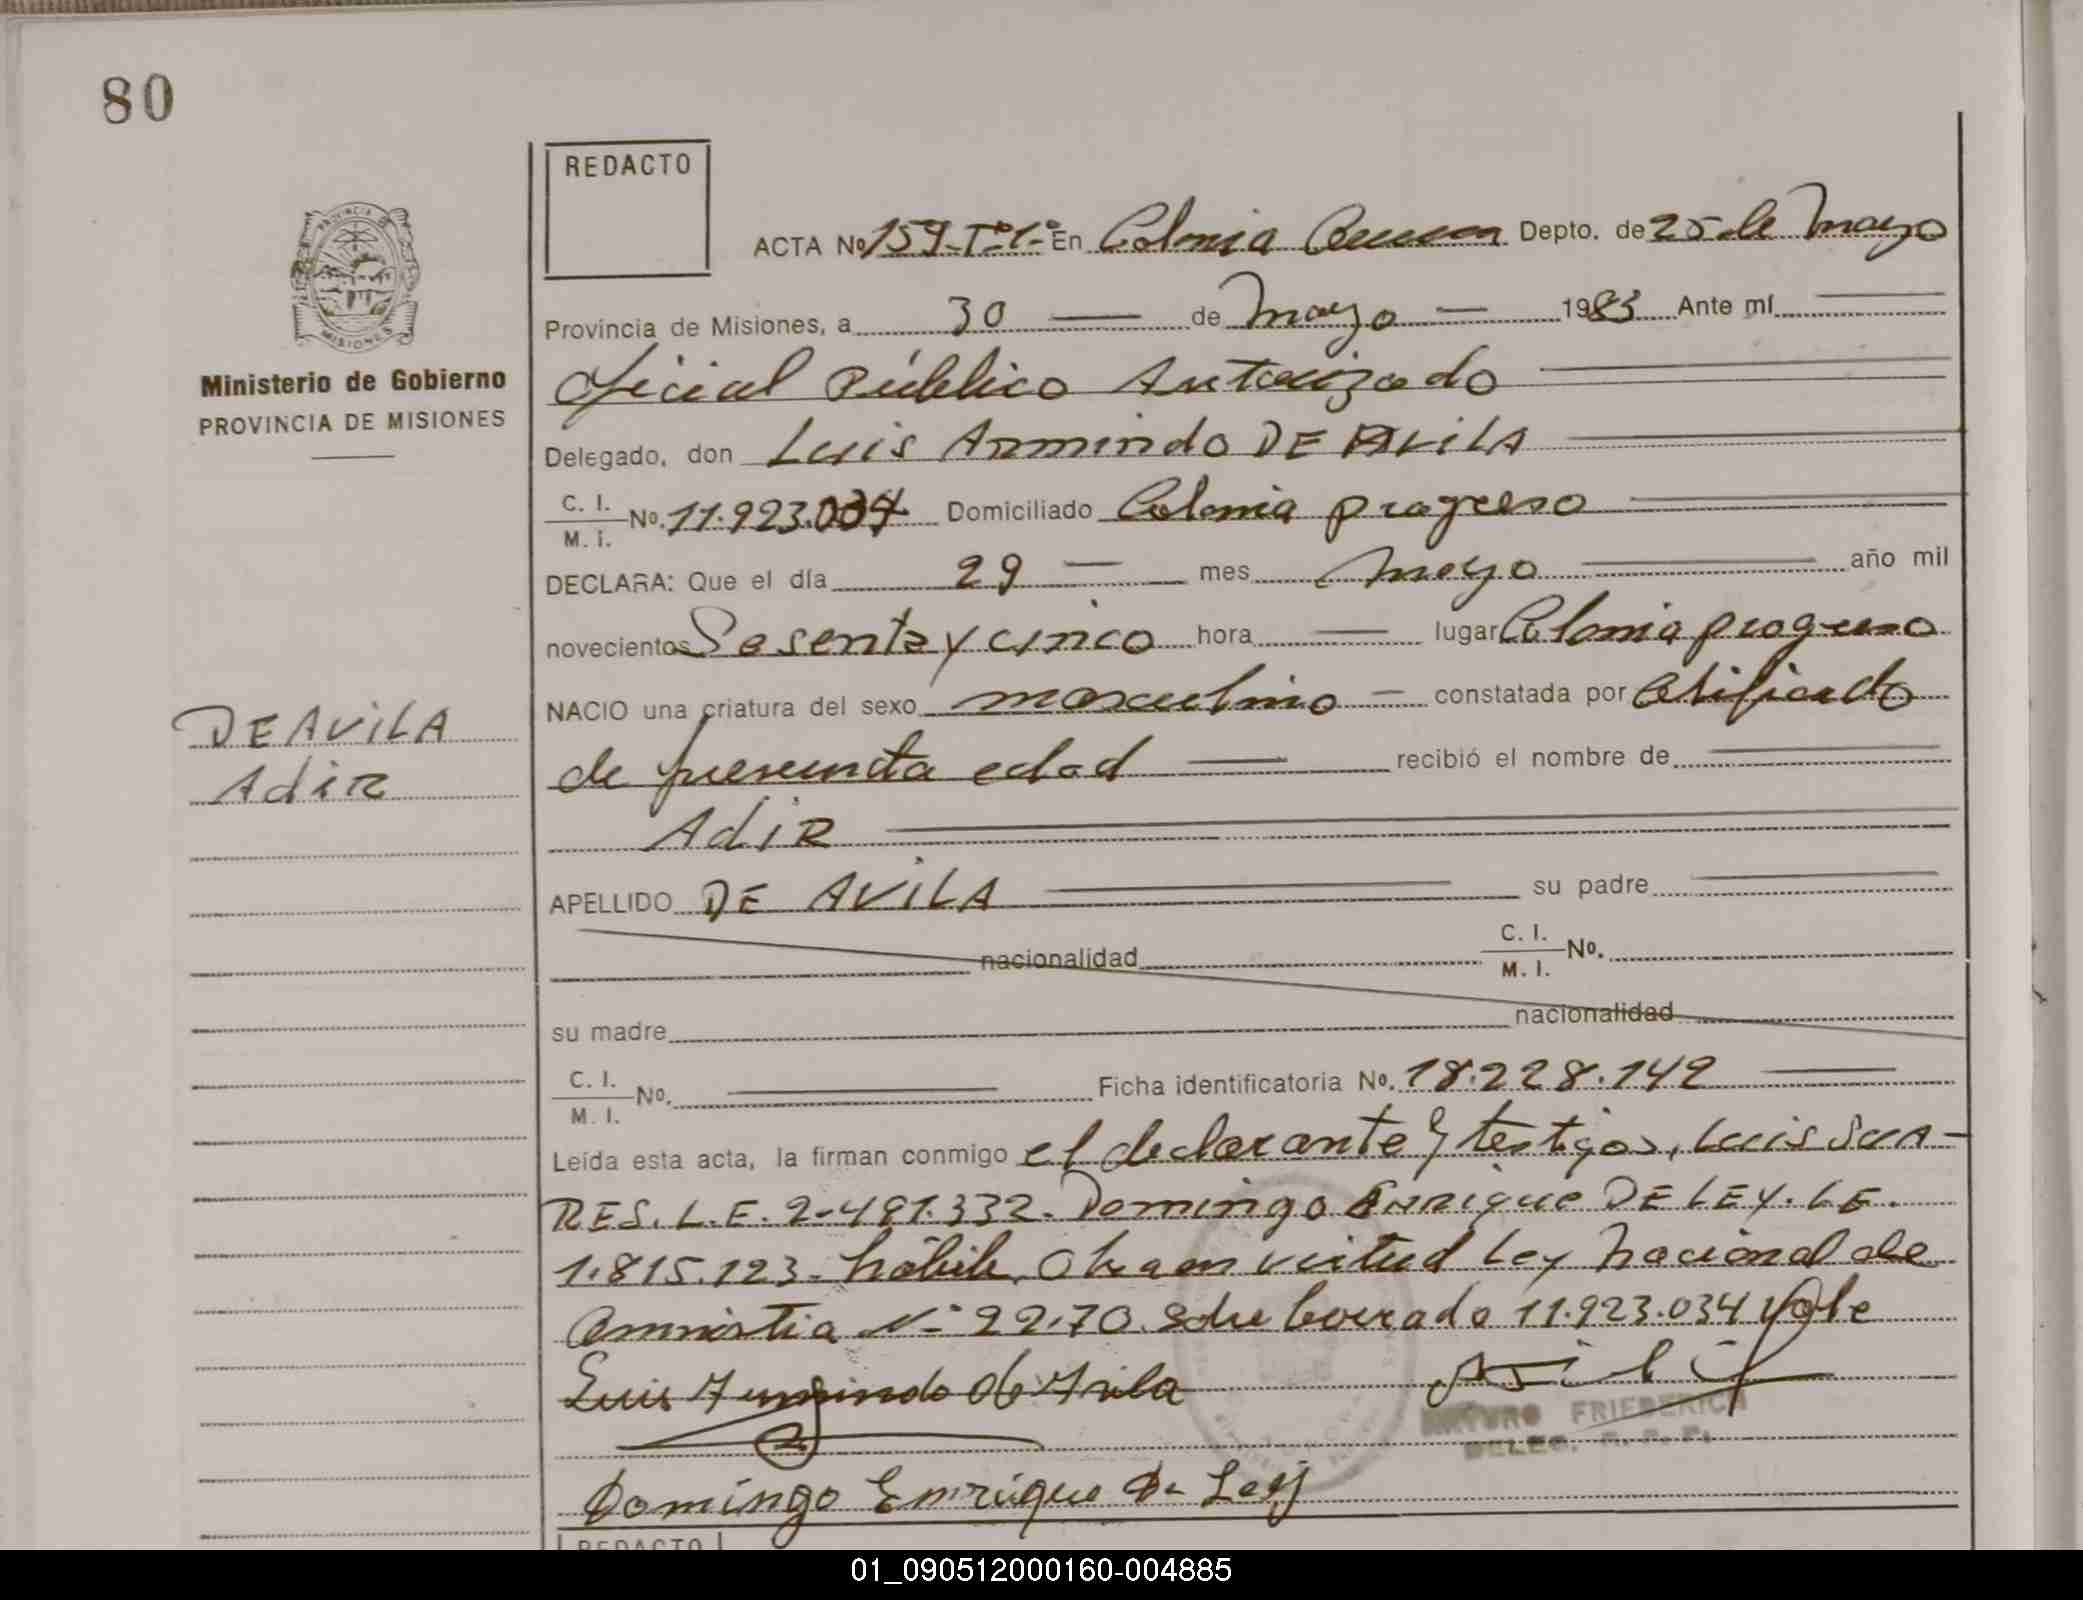 80
REDACTO
ACTA Nº 159-Tº1º En Colonia Aurora Depto. de 25 de Mayo
Provincia de Misiones, a 30 de Mayo 1983 Ante mí
Oficial Público Autorizado
Ministerio de Gobierno
PROVINCIA DE MISIONES
Delegado, don Luis Armindo DE AVILA
C. I.
M. i. Nº. 11.923.034 Domiciliado Colonia progreso
DECLARA: Que el día 29 mes mayo año mil
novecientos Sesenta y cinco hora lugar Colonia progreso
NACIO una criatura del sexo masculino constatada por
de presunta edad recibió el nombre de
DE AVILA
AdiR
AdiR
APELLIDO DE AVILA su padre
nacionalidad C. I.
M. I. Nº.
nacionalidad
su madre
C. I.
M. I. Nº. Ficha identificatoria Nº. 18.228.142
Leída esta acta, la firman conmigo el declarante y testigos, Luis SUA-
RES. L.E. 2-481.332. Domingo ENRique DE LEY. LE.
1.815.123- hábile, en virtud Ley Nacional de
Amnistia Nº 22.70. Sobre borrado 11.923.034 Vale
Luis Armindo de Avila
ARTURO FRIEDERICH
DELEG. R. P. P.
Domingo Enrrique De Ley
REDACTO
01_090512000160-004885